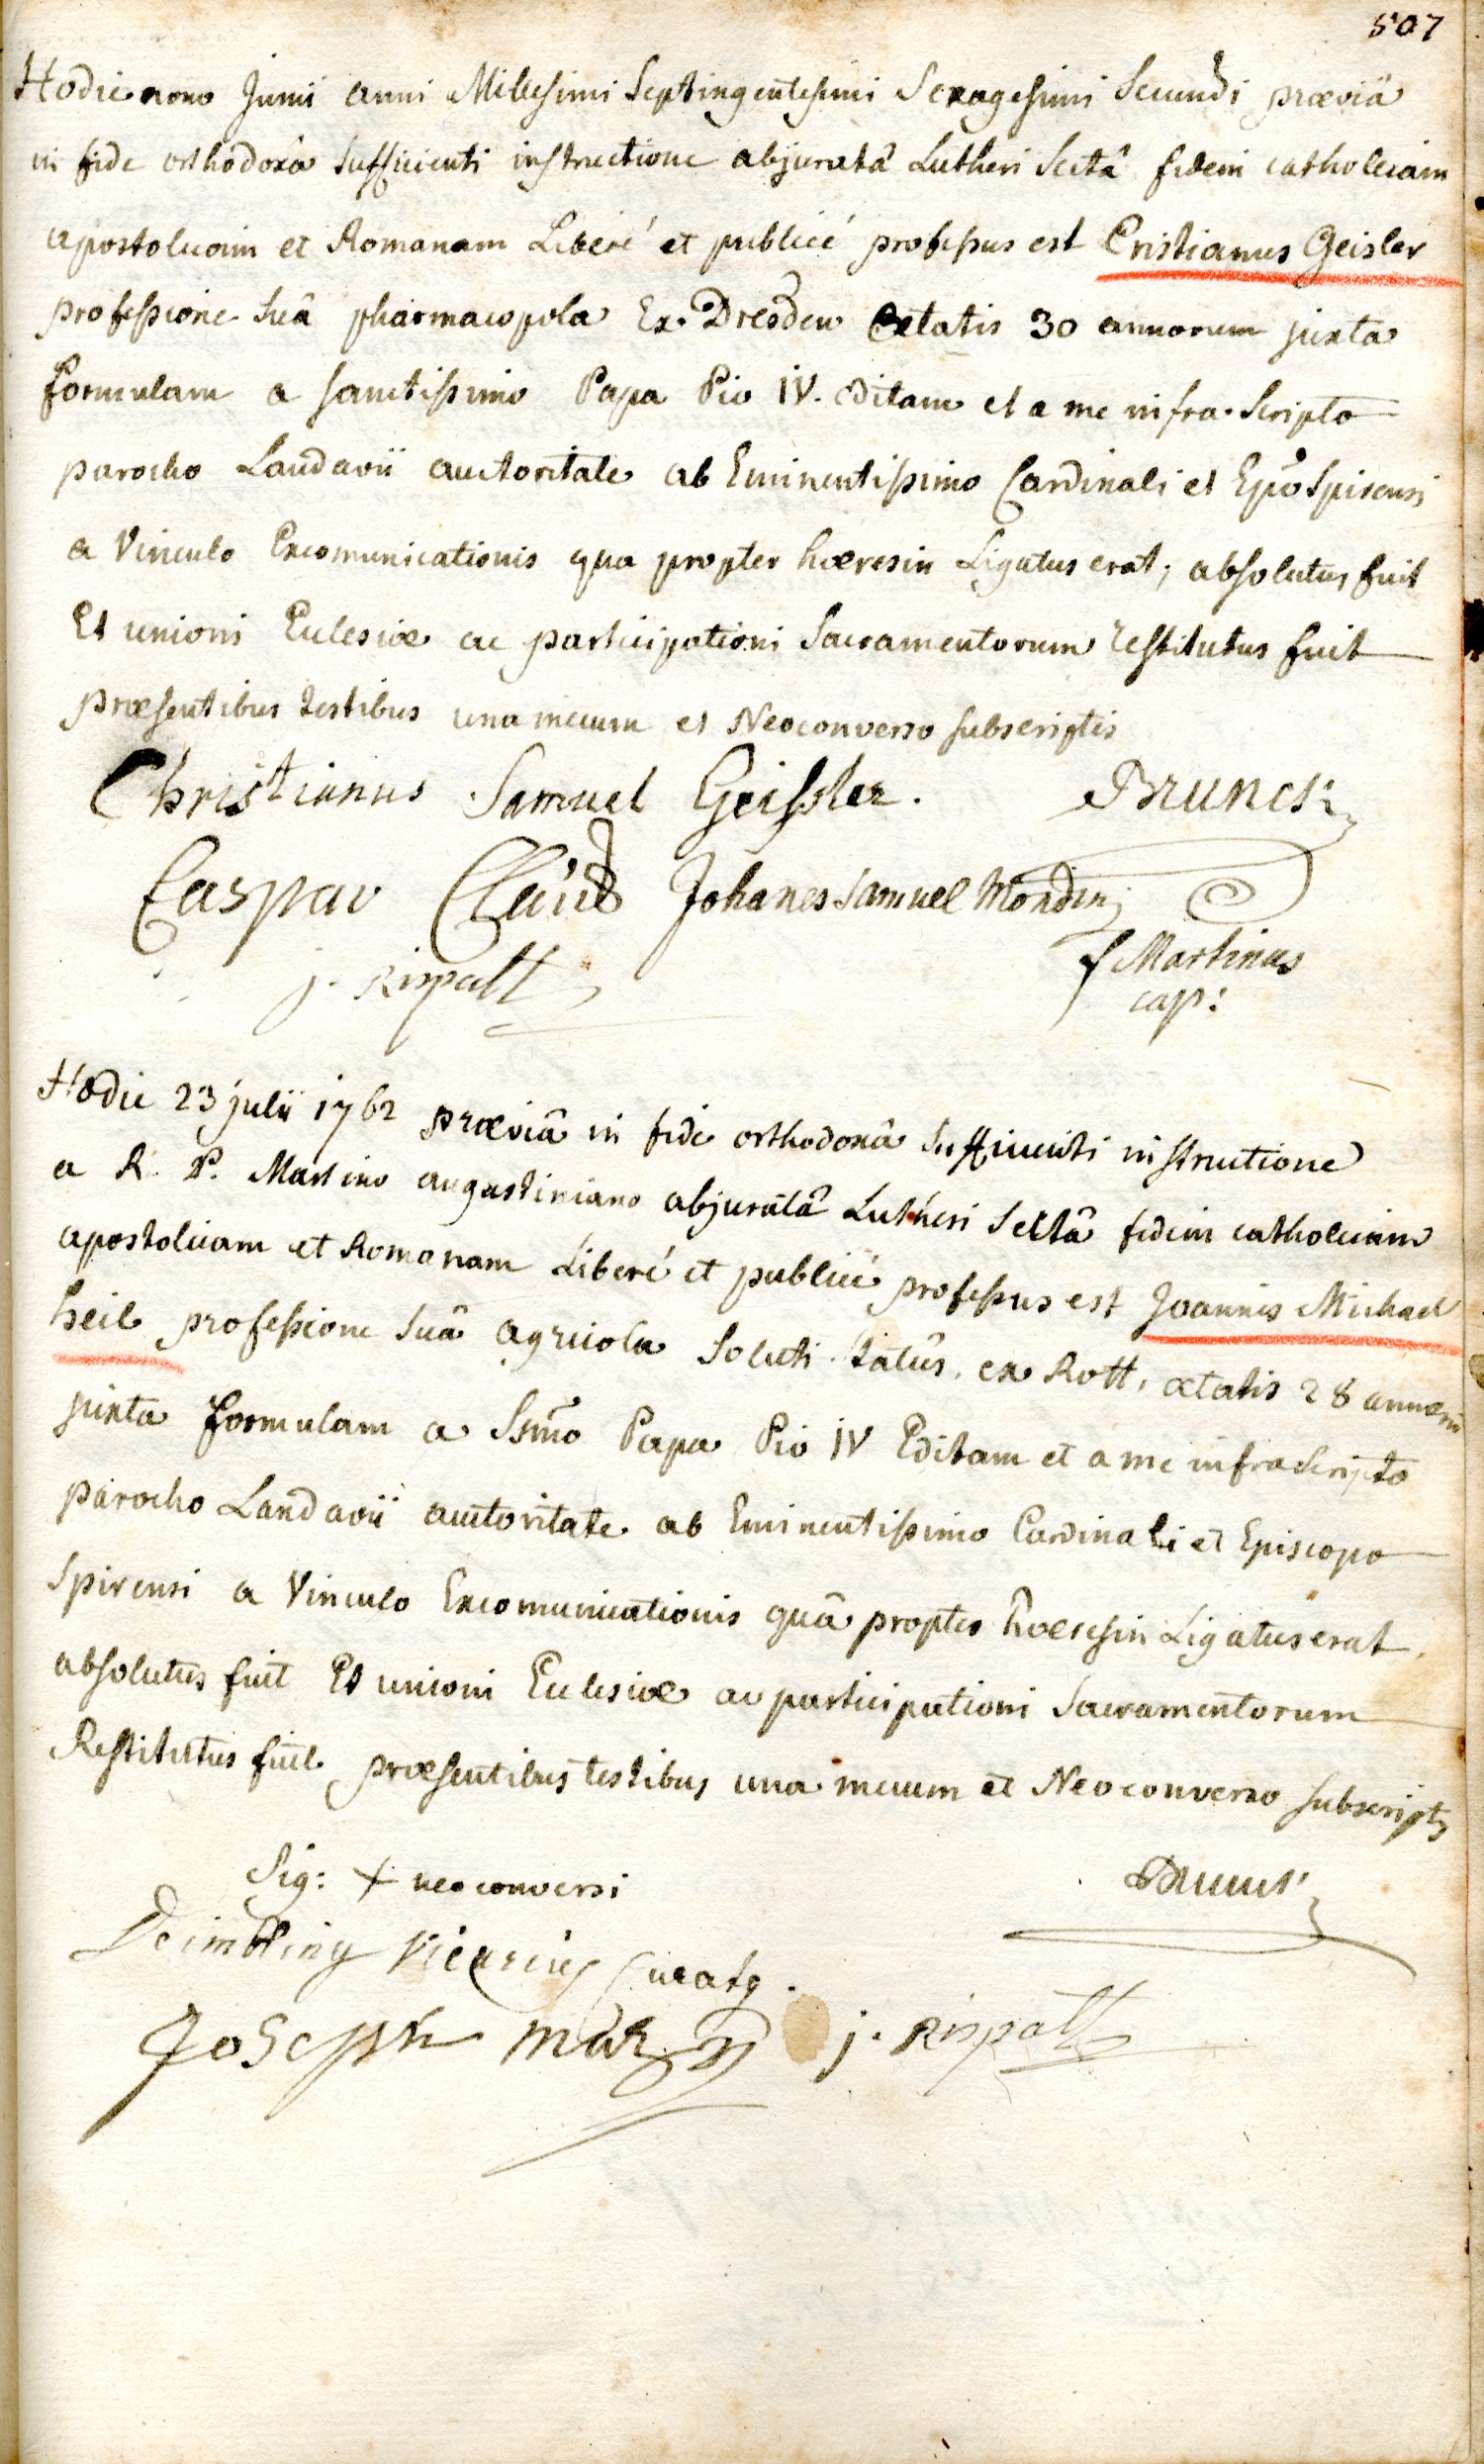 507
Hodie nono Junii anni Millesimi Septingentesimi Sexagesimi Secundi præviâ
in fide orthodoxa sufficienti instructione abjuratâ Lutheri Sectâ fidem catholicam
apostolicam et Romanam Liberé et publicé professus est Cristianus Geisler
professione suâ pharmacopola Ex Dresden Ætatis 30 annorum juxta
formulam a sanctissimo Papa Pio IV. Editam et a me infra scripto
parocho Landavii auctoritate ab Eminentissimo Cardinali et Epõ Spirensi
a Vinculo Excomunicationis qua propter hæresin Ligatus erat, absolutus fuit
Et unioni Eclesiæ ac participationi Sacramentorum restitutus fuit
præsentibus testibus una mecum et Neoconverso subscriptis
Christianus Samuel Geissler. Brunck
Caspar Johanes Samuel
j. Rispalt f Martinus
cap:
Hodie 23 julii 1762 præviâ in fide orthodoxâ sufficienti instructione
a R. P. Martino augustiniano abjuratâ Lutheri Sectâ fidem catholicam
apostolicam et Romanam Liberé et publicé professus est Joannis Michael
heil professione suâ agricola soluti statûs, ex Rott, ætatis 28 annorũ
juxta formulam a Ssmõ Papa Pio IV Editam et a me infrascripto
parocho Landavii auctoritate ab Eminentissimo Cardinali et Episcopo
Spirensi a Vinculo Excomunicationis quâ propter hæresin Ligatus erat
absolutus fuit Et unioni Eclesiæ ac participationi Sacramentorum
Restitutus fuit præsentibus testibus una mecum et Neoconverso subscriptis
Sig: + neoconversi Brunck
Deimbling Vicarius Curatq.
Joseph j. Rispalt